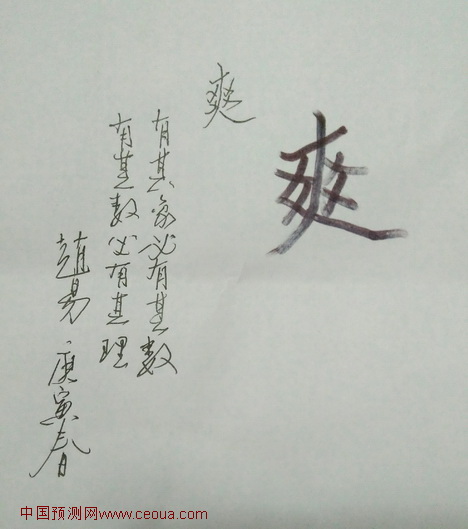 爽
爽
有其象必有其数
有其数必有其理
赵易
庚寅春
中国预测网www.ceoua.com